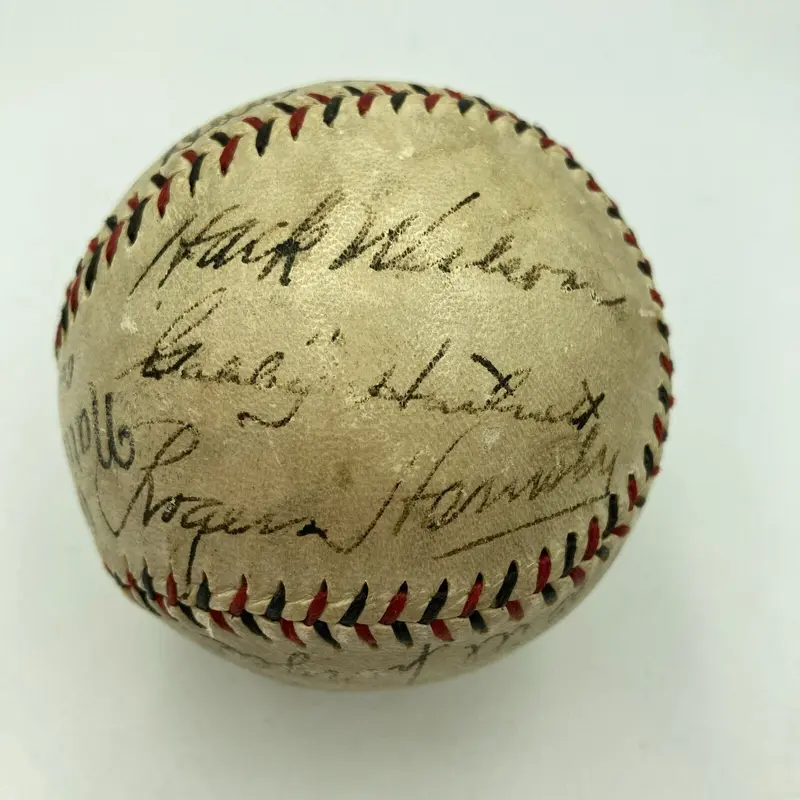 Hack Wilson
"Gabby" Hartnett
Rogers Hornsby